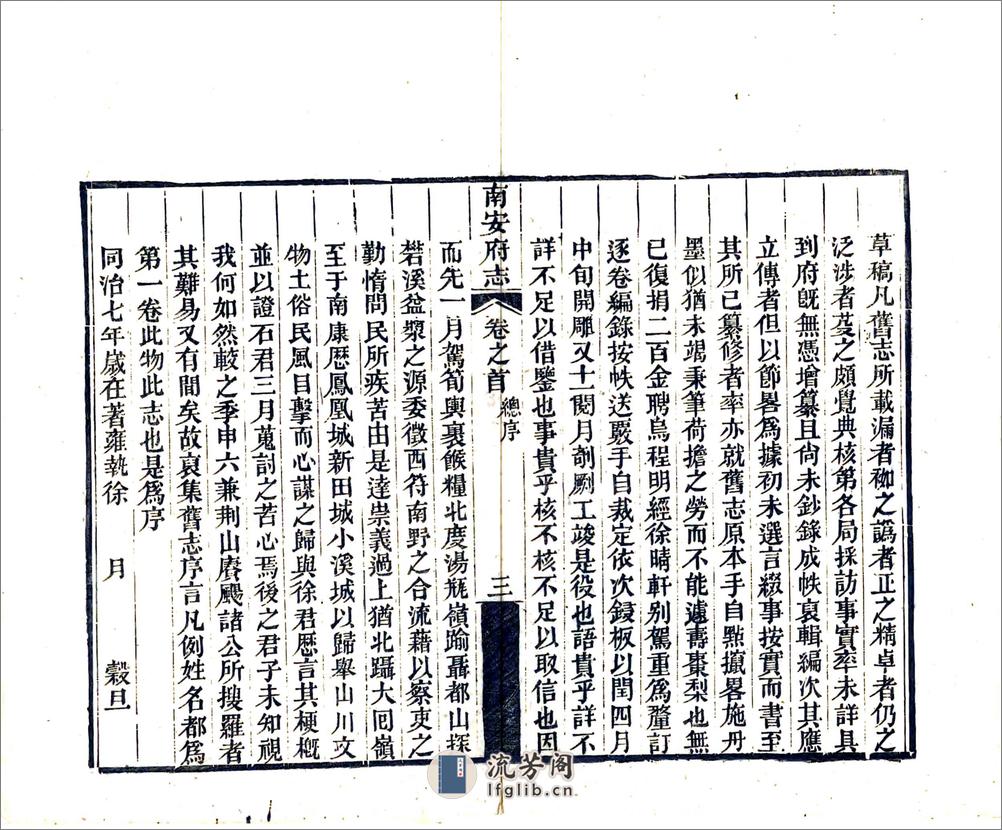 草稿凡舊志所載漏者補之譌者正之精卓者仍之
泛涉者芟之頗覺典核第各局採訪事實率未詳具
到府旣無憑增纂且尙未鈔錄成帙裒輯編次其應
立傳者但以節畧爲據初未選言綴事按實而書至
其所已纂修者率亦就舊志原本手自㸃攛畧施丹
墨似猶未竭秉筆荷擔之勞而不能遽壽棗梨也無
已復捐二百金聘烏程明經徐晴軒别駕重爲釐訂
逐卷編錄按帙送覈手自裁定依次鋟板以閏四月
中旬開雕又十一閱月剞劂工竣是役也語貴乎詳不
詳不足以借鑒也事貴乎核不核不足以取信也因
南安府志
卷之首
總序
三
而先一月駕筍輿裹餱糧北度湯㼽嶺踰聶都山探
礬溪益漿之源委徵西符南野之合流藉以察吏之
勤惰問民所疾苦由是達崇義過上猶北躡大囘嶺
至于南康歷鳳凰城新田城小溪城以歸舉山川文
物土俗民風目擊而心謀之歸與徐君歷言其梗槪
並以證石君三月蒐討之苦心焉後之君子未知視
我何如然較之季申六兼荆山賡颺諸公所搜羅者
其難易又有間矣故裒集舊志序言凡例姓名都爲
第一卷此物此志也是爲序
同治七年歲在著雍執徐 月 穀旦
流芳阁
lfglib.cn